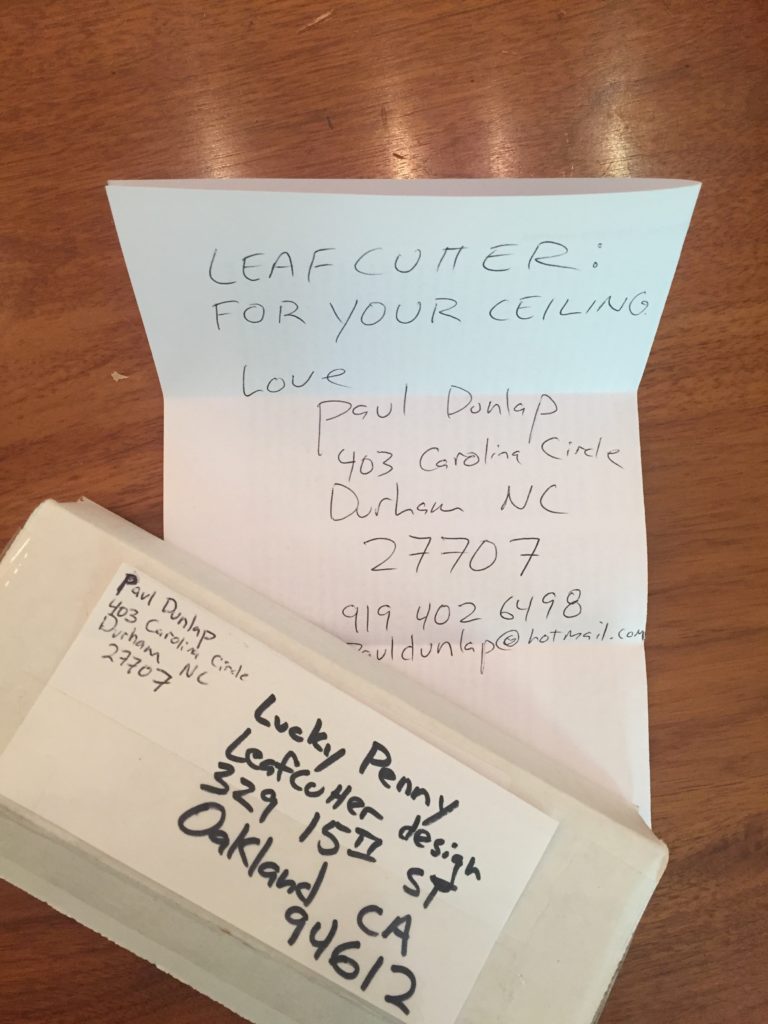 LEAFCUTTER:
FOR YOUR CEILING
Love
Paul Dunlap
403 Carolina Circle
Durham NC
27707
919 402 6498
Pauldunlap@hotmail.com
Paul Dunlap
403 Carolina Circle
Durham NC
27707
Lucky Penny
Leafcutter design
329 15TH ST
Oakland CA
94612